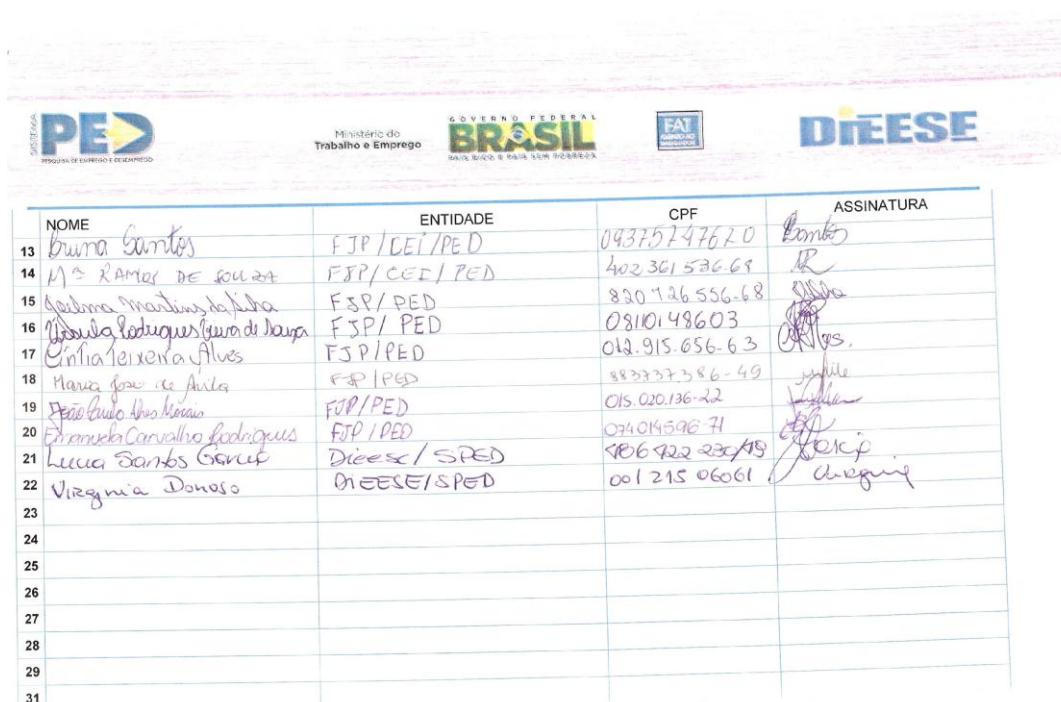 SISTEMA PED
PESQUISA DE EMPREGO E DESEMPREGO
Ministério do
Trabalho e Emprego
GOVERNO FEDERAL
BRASIL
PAÍS RICO É PAÍS SEM POBREZA
FAT
DIEESE
NOME ENTIDADE CPF ASSINATURA
13 Bruna Santos FJP/CEI/PED Santos
14 Mª RAMOS DE SOUZA FJP/CEI/PED 402 361 536-68
15 Joelma Martins da Silva FJP/PED 820 726.556-68
16 Úrsula Rodrigues de Souza FJP/PED 08110148603
17 Cíntia Teixeira Alves FJP/PED 012.915.656-63
18 Maria José de Ávila FJP/PED 883737386-49
19 João Paulo Alves Morais FJP/PED 015.020.136-22
20 Emanuela Carvalho Rodrigues FJP/PED 074014596-71
21 Lucia Santos Garcia Dieese/SPED Garcia
22 Virginia Donoso DIEESE/SPED 001 215 06061 Virginia
23
24
25
26
27
28
29
31